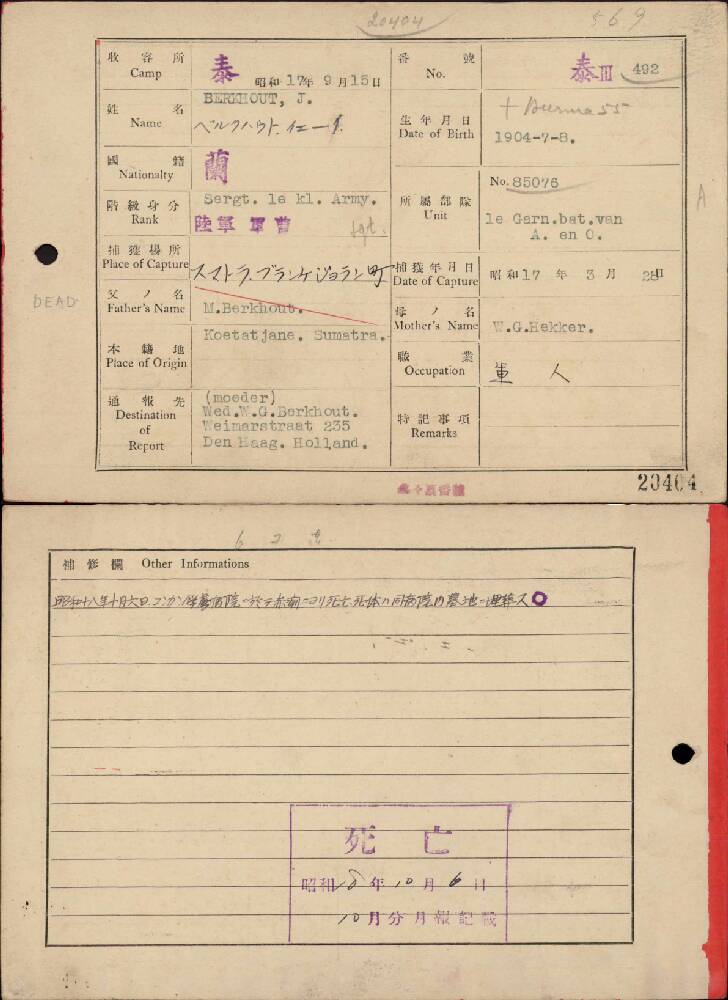 20404
569
收容所 Camp 泰 昭和17年9月15日
番號 No. 泰III 492
姓名 Name BERKHOUT, J.
ベルクハウト.イエー.
生年月日 Date of Birth 1904-7-8.
+ Burma 55
國籍 Nationalty 蘭
階級身分 Rank Sergt. 1e kl. Army.
陸軍 軍曹 sgt.
所屬部隊 Unit No. 85076
1e Garn.bat.van
A. en O.
A
捕獲場所 Place of Capture スマトラ.ブランケジョラン町
捕獲年月日 Date of Capture 昭和17年3月28日
DEAD
父ノ名 Father's Name M.Berkhout.
母ノ名 Mother's Name W.G.Hekker.
本籍地 Place of Origin Koetatjane. Sumatra.
職業 Occupation 軍人
通報先 Destination of Report (moeder)
Wed.W.G.Berkhout.
Weimarstraat 235
Den Haag. Holland.
特記事項 Remarks
20404
補修欄 Other Informations
昭和十八年十月六日.コンカン俘虜病院ニ於テ赤痢ニヨリ死亡.死体ハ同病院内墓地ニ埋葬ス
死亡
昭和18年10月6日
10月分月報記載